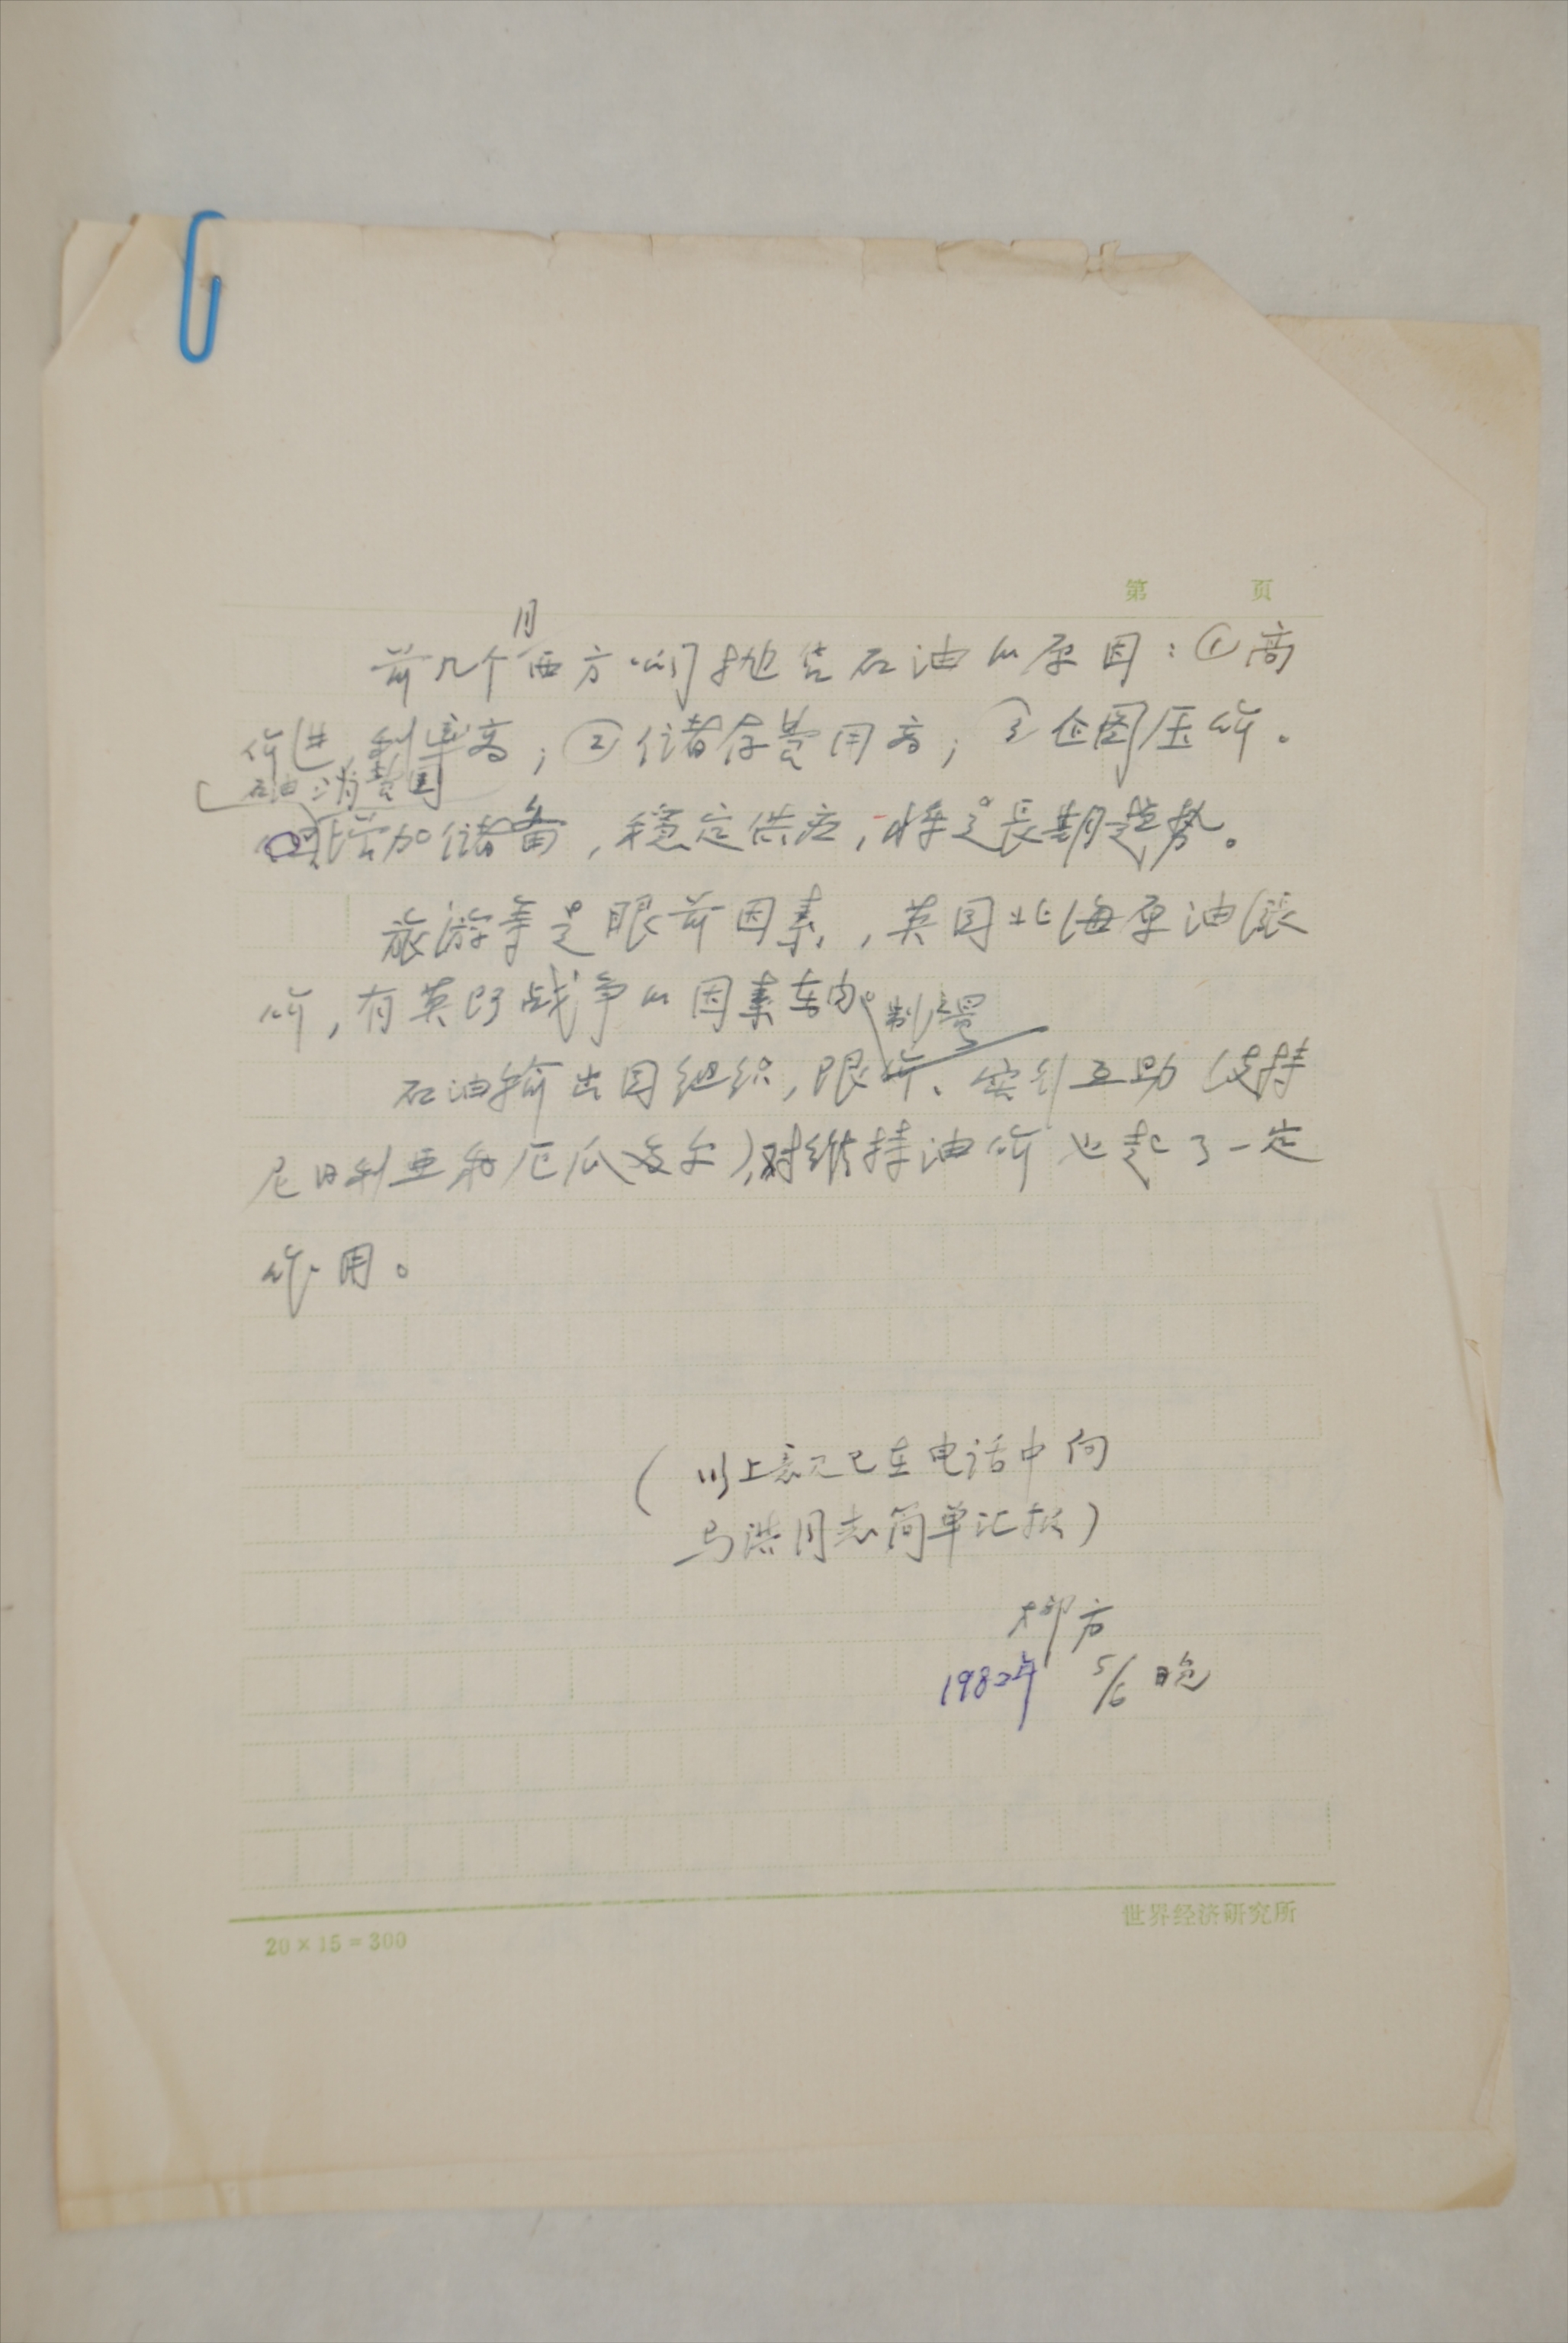 第 页
月
前几个西方 抛售石油的原因：①高
价进，利率高；②储存费用高；③企图压价。
石油消费国
增加储备，稳定供应，将是长期趋势。
旅游等是眼前因素，英国北海原油涨
价，有英阿战争的因素在内。
制量
石油输出国组织，限价、实行互助（支持
尼日利亚和厄瓜多尔），对维持油价也起了一定
作用。
（以上意见已在电话中向
马洪同志简单汇报）
1982年 5/6 晚
世界经济研究所
20×15=300